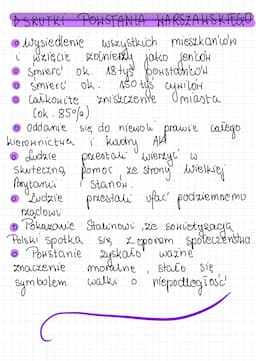 SKUTKI POWSTANIA WARSZAWSKIEGO
wysiedlenie wszystkich mieszkańców
i wzięcie żołnierzy jako jeńców
śmierć ok. 18 tyś powstańców
śmierć ok. 150 tyś cywilów
Całkowite zniszczenie miasta
(ok. 85%)
oddanie się do niewoli prawie całego
kierownictwa i kadry AK
Ludzie przestali wierzyć w
skuteczną pomoc ze strony Wielkiej
Brytanii i Stanów.
Ludzie przestali ufać podziemnemu
rządowi
Pokazanie Stalinowi, że sowietyzacja
Polski spotka się z oporem społeczeństwa
Powstanie zyskało ważne
znaczenie moralne, stało się
symbolem walki o niepodległość